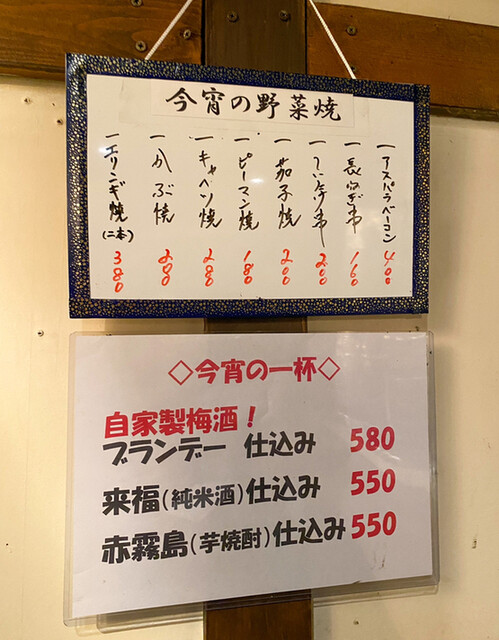 今宵の野菜焼
一アスパラベーコン 400
一長ねぎ串 160
一しいたけ串 200
一茄子焼 200
一ピーマン焼 180
一キャベツ焼 280
一かぶ焼 280
一エリンギ焼(二本) 380
◇今宵の一杯◇
自家製梅酒！
ブランデー 仕込み 580
来福(純米酒)仕込み 550
赤霧島(芋焼酎)仕込み 550